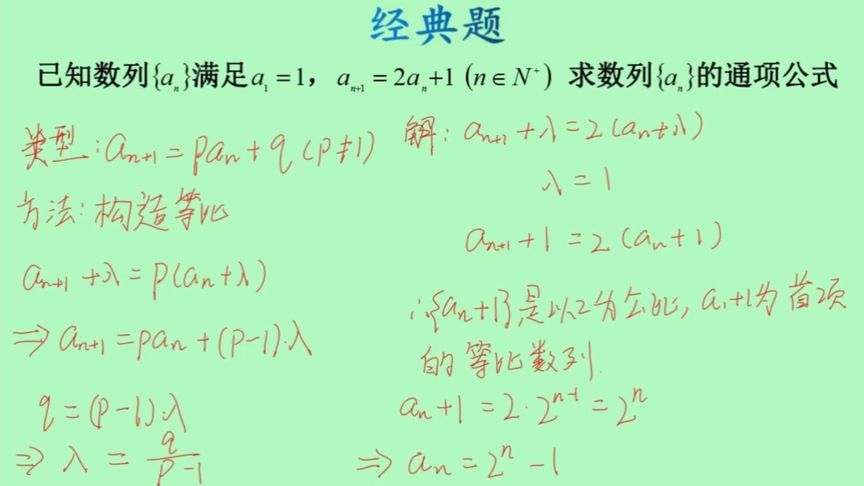 经典题
已知数列{aₙ}满足a₁=1，aₙ₊₁=2aₙ+1 (n∈N⁺) 求数列{aₙ}的通项公式
类型:aₙ₊₁=paₙ+q(p≠1)
方法:构造等比
aₙ₊₁+λ=p(aₙ+λ)
⇒aₙ₊₁=paₙ+(p-1)·λ
q=(p-1)·λ
⇒λ=q/(p-1)
解:aₙ₊₁+λ=2(aₙ+λ)
λ=1
aₙ₊₁+1=2(aₙ+1)
∴{aₙ+1}是以2为公比,a₁+1为首项
的等比数列.
aₙ+1=2·2ⁿ⁻¹=2ⁿ
⇒aₙ=2ⁿ-1